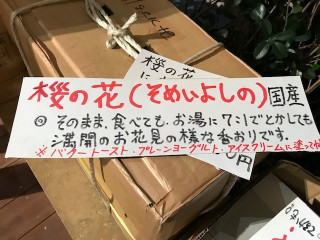 桜の花(そめいよしの)国産
◎そのまま、食べても、お湯に7ツルでとかしても
満開のお花見の様な香おりです。
※バタートースト・プレーンヨーグルト・アイスクリームに塗って
桜の花
円